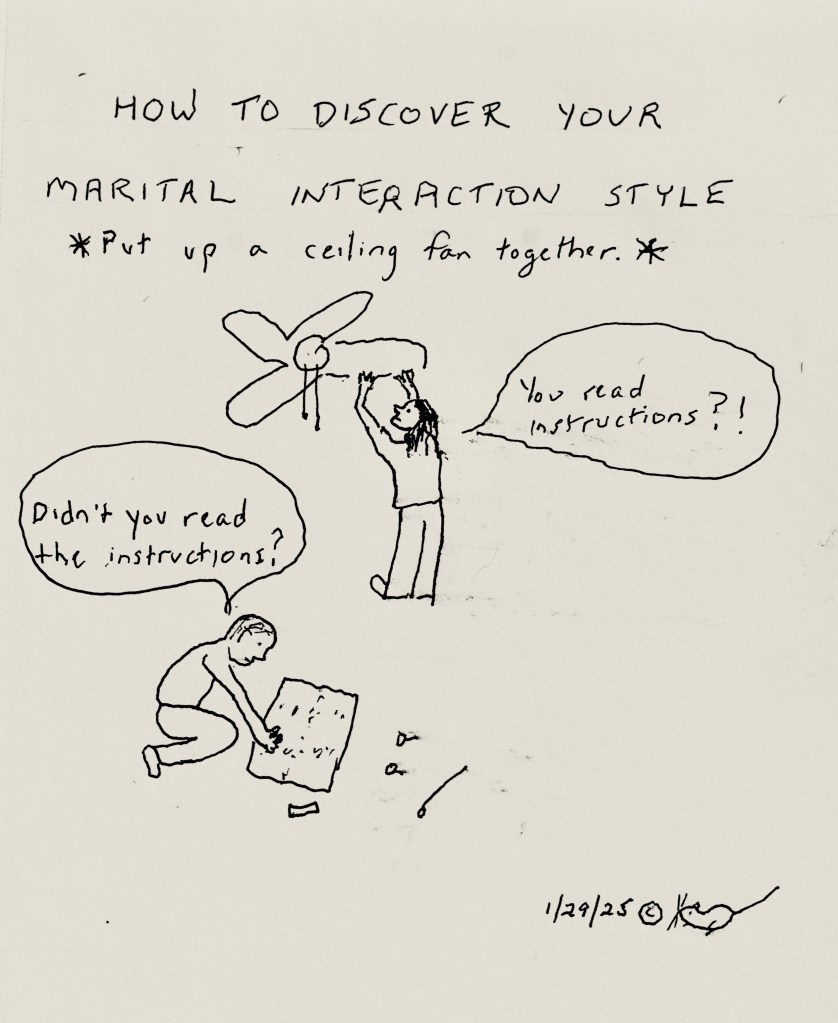 HOW TO DISCOVER YOUR
MARITAL INTERACTION STYLE
*Put up a ceiling fan together.*
You read
instructions?!
Didn't you read
the instructions?
1/29/25 ©